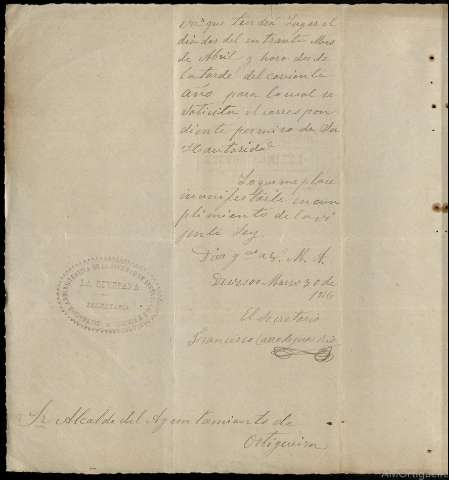 que tendrá lugar el
dia dos del entrante Mes
de Abril y hora dos de
la tarde del corriente
año para lo cual se
solicita el corres pon
diente permiso de Su
Autoridad
Lo que me place
manifestarle en cum
plimiento de la vi
gente Ley
Dios gue a V. M. A.
Devesos Marzo 30 de
El Secretario
Francisco
LA DEVESANA
SECRETARIA
Sr Alcalde del Ayuntamiento de
Ortigueira
AMOrtigueira